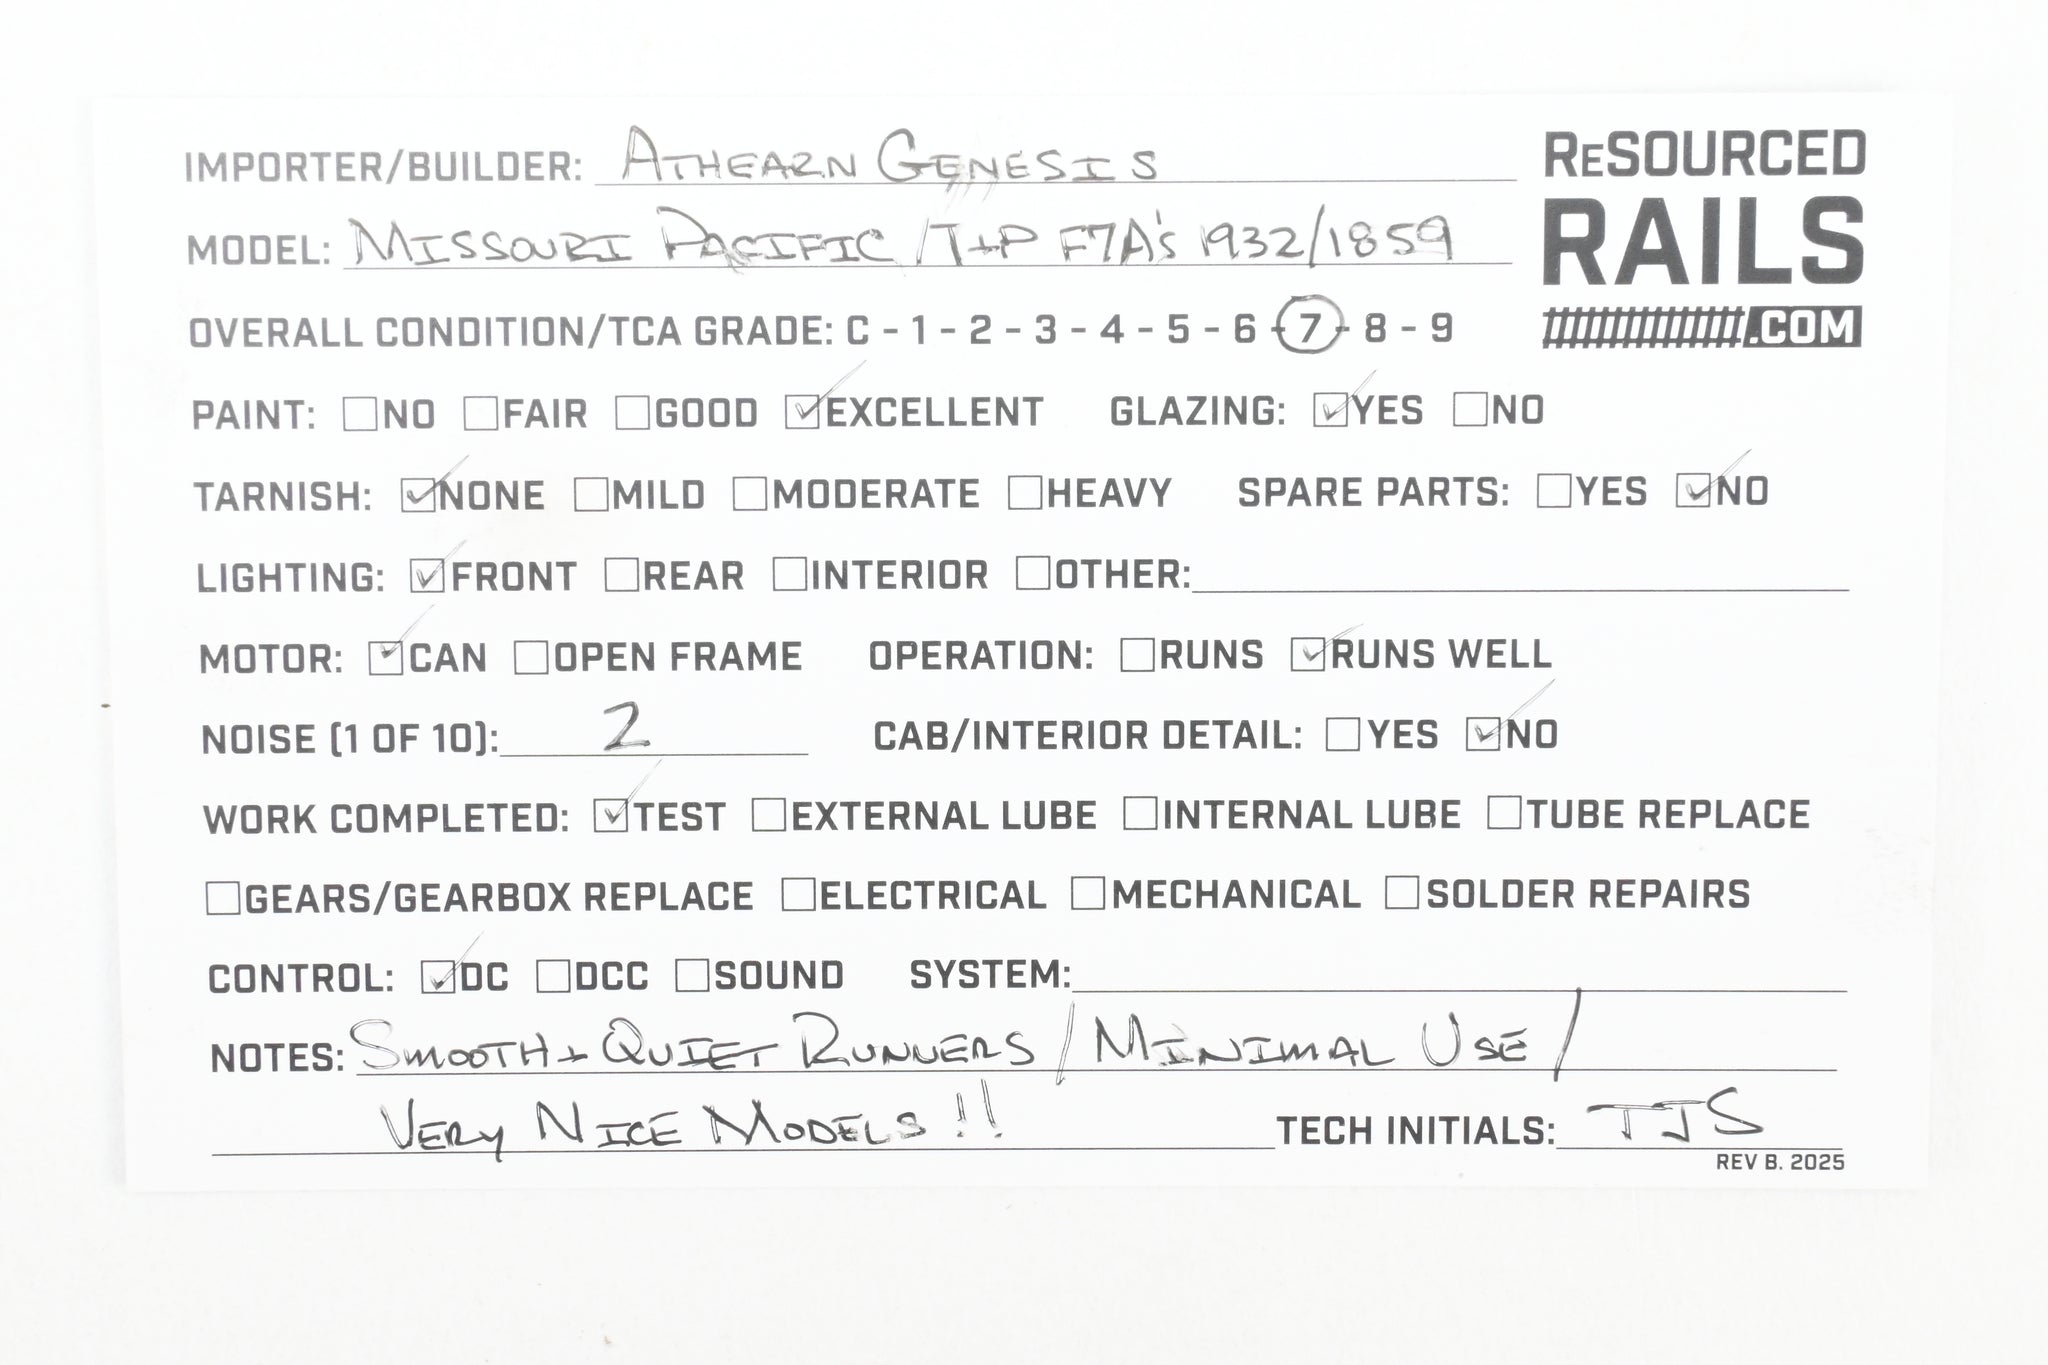 IMPORTER/BUILDER: ATHEARN GENESIS
ReSOURCED
RAILS
.COM
MODEL: MISSOURI PACIFIC/T+P F7A's 1932/1859
OVERALL CONDITION/TCA GRADE: C - 1 - 2 - 3 - 4 - 5 - 6 - 7 - 8 - 9
PAINT: ☐NO ☐FAIR ☐GOOD ☑EXCELLENT GLAZING: ☑YES ☐NO
TARNISH: ☑NONE ☐MILD ☐MODERATE ☐HEAVY SPARE PARTS: ☐YES ☑NO
LIGHTING: ☑FRONT ☐REAR ☐INTERIOR ☐OTHER:
MOTOR: ☑CAN ☐OPEN FRAME OPERATION: ☐RUNS ☑RUNS WELL
NOISE (1 OF 10): 2 CAB/INTERIOR DETAIL: ☐YES ☑NO
WORK COMPLETED: ☑TEST ☐EXTERNAL LUBE ☐INTERNAL LUBE ☐TUBE REPLACE
☐GEARS/GEARBOX REPLACE ☐ELECTRICAL ☐MECHANICAL ☐SOLDER REPAIRS
CONTROL: ☑DC ☐DCC ☐SOUND SYSTEM:
NOTES: SMOOTH + QUIET RUNNERS / MINIMAL USE /
VERY NICE MODELS!! TECH INITIALS: TJS
REV B. 2025